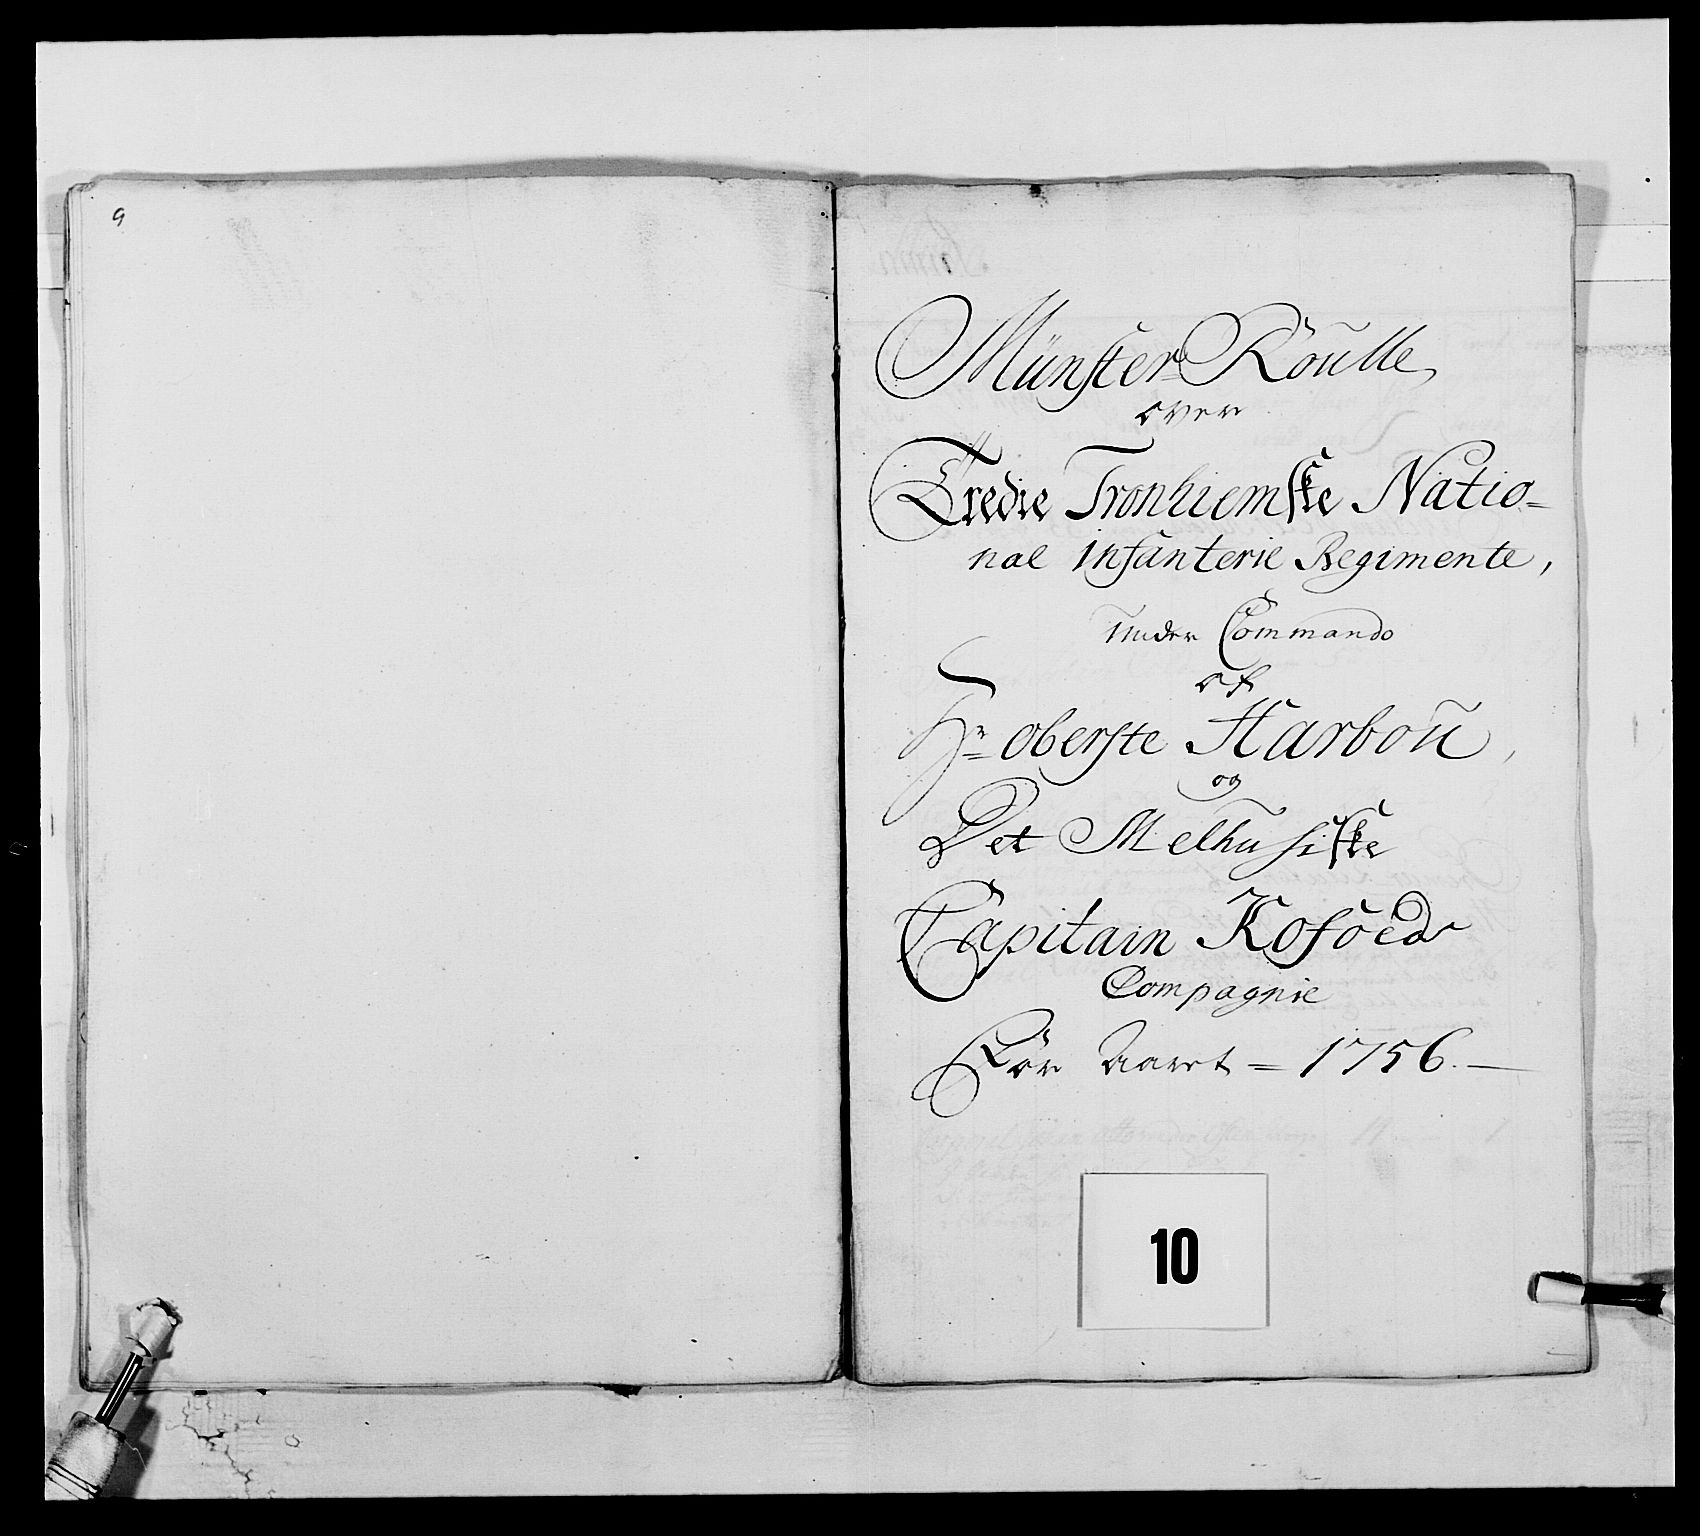 9
Münster Roulle,
over
Tredie Tronhiemske Natio=
nal infanterie Regimente,
Under Commando
af
Hr oberste Harbou,
og
Det Melhusiske
Capitain Kofoeds
Compagnie
For Aaret = 1756. —
10